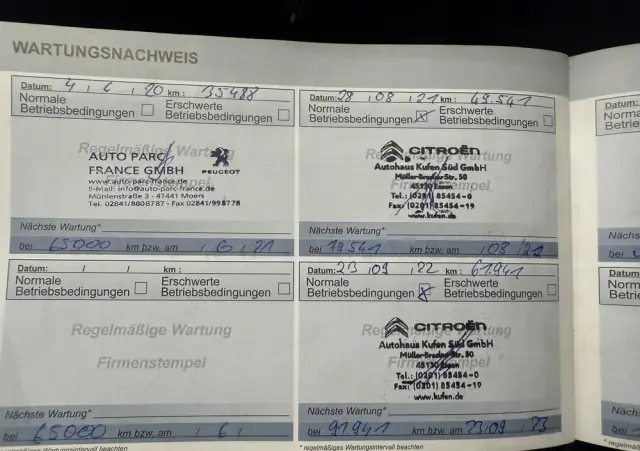 WARTUNGSNACHWEIS
Datum: 4 , 6 , 20 km: 35488
Normale Betriebsbedingungen Erschwerte Betriebsbedingungen
Regelmäßige Wartung
Firmenstempel
AUTO PARC
FRANCE GMBH
PEUGEOT
www.auto-parc-france.de
E-Mail: info@auto-parc-france.de
Mühlenstraße 3 - 47441 Moers
Tel. 02841/8808787 - Fax 02841/998778
Nächste Wartung*
bei 65000 km bzw. am / 6 / 21
Datum: 28 , 08 , 21 km: 49.541
Normale Betriebsbedingungen Erschwerte Betriebsbedingungen
Regelmäßige Wartung
Firmenstempel
CITROËN
Autohaus Kufen Süd GmbH
Müller-Breslau-Str. 30
45130 Essen
Tel.: (0201) 85454-0
Fax: (0201) 85454-19
www.kufen.de
Nächste Wartung*
bei 79.541 km bzw. am / 08 / 22
Datum: / / km:
Normale Betriebsbedingungen Erschwerte Betriebsbedingungen
Regelmäßige Wartung
Firmenstempel
Nächste Wartung*
bei 65000 km bzw. am / 6 /
* regelmäßiges Wartungsintervall beachten
Datum: 23 , 09 , 22 km: 61.941
Normale Betriebsbedingungen Erschwerte Betriebsbedingungen
Regelmäßige Wartung
Firmenstempel
CITROËN
Autohaus Kufen Süd GmbH
Müller-Breslau-Str. 30
45130 Essen
Tel.: (0201) 85454-0
Fax: (0201) 85454-19
www.kufen.de
Nächste Wartung*
bei 91941 km bzw. am 23/09 / 23
* regelmäßiges Wartungsintervall beachten